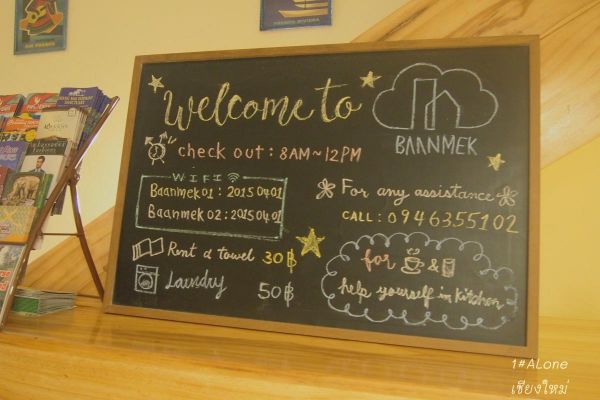 Welcome to
BAANMEK
check out : 8AM~12PM
WIFI
Baanmek01 : 20150401
Baanmek 02 : 20150401
For any assistance
CALL : 0946355102
Rent a towel 30฿
Laundry 50฿
for & 
help yourself in kitchen
1#ALone
เชียงใหม่